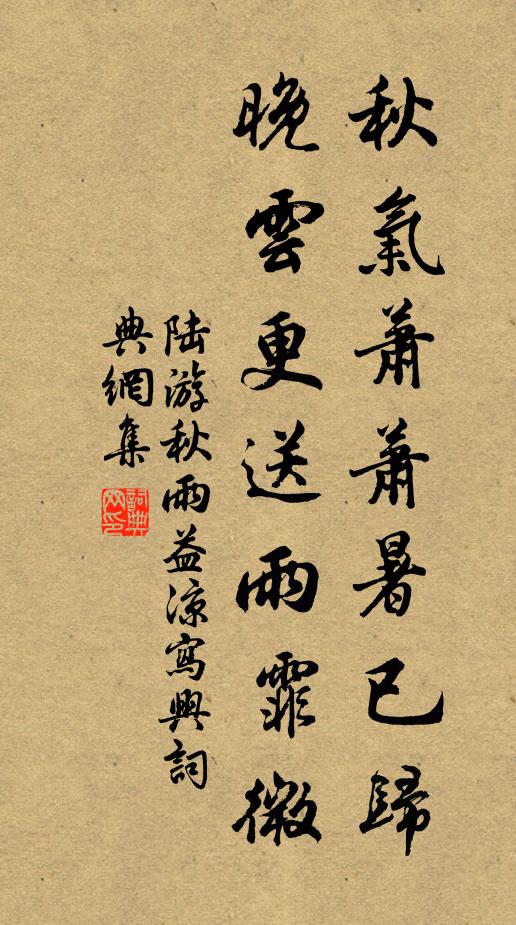 秋氣蕭蕭暑已歸
晚雲更送雨霏微
陆游秋雨益凉寫興詞
典網集
詞典
网印